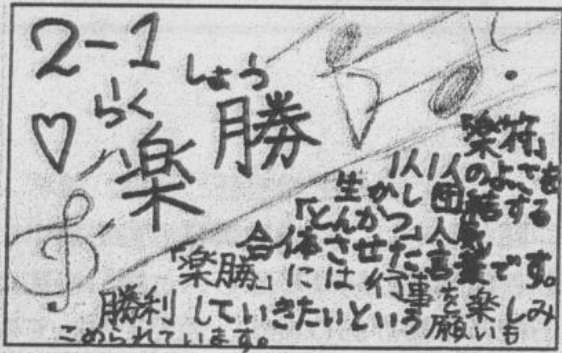 2-1
♡
らくしょう
楽勝
楽符」
1人1人のよさを
生かし団結する
「とんかつ」
合体させた言葉です。
「楽勝」には行事を楽しみ
勝利していきたいという願いも
こめられています。